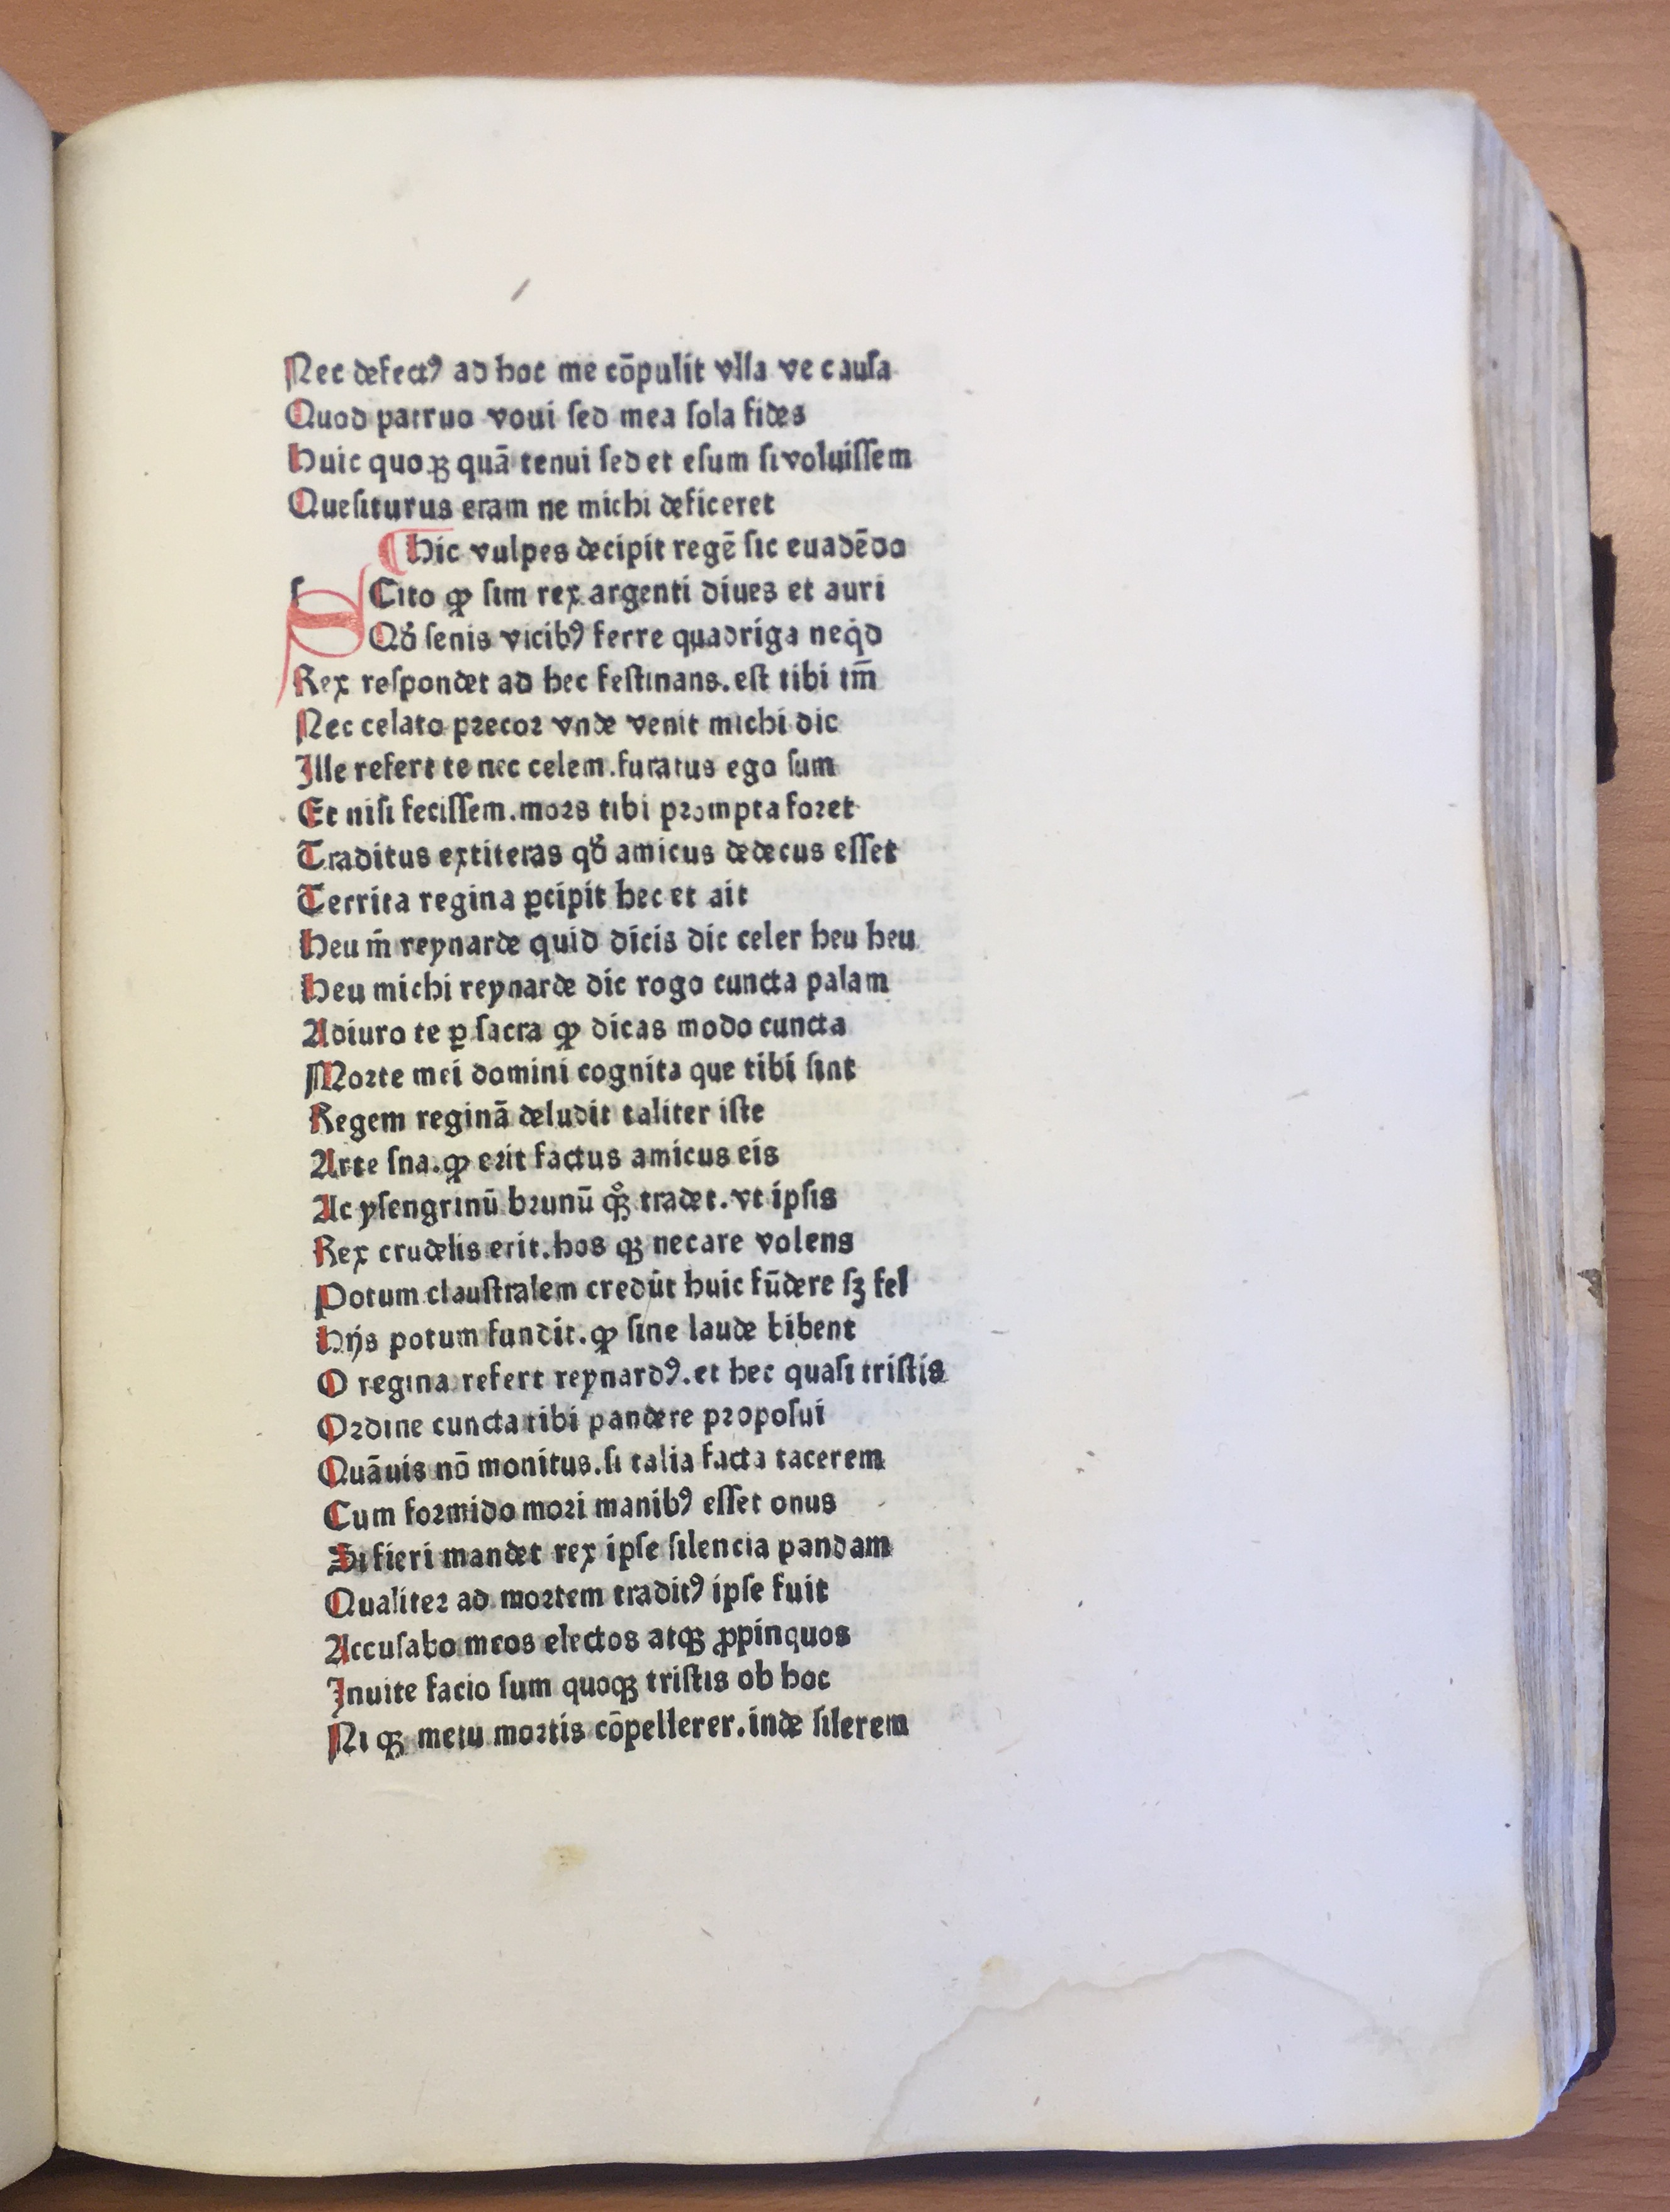 Nec defectꝰ ad hoc me cōpulit vlla ve cauſa
Quod patruo voui ſed mea ſola fides
Huic quoqꝫ quā tenui ſed et eſum ſi voluiſſem
Queſiturus eram ne michi deficeret
¶ Hic vulpes decipit regē ſic euadēdo
SCito ꝙ ſim rex argenti diues et auri
Qđ ſenis vicibꝰ ferre quadriga neq̇d
Rex reſpondet ad hec feſtinans. eſt tibi tm̄
Nec celato precor vnde venit michi dic
Ille refert te nec celem. furatus ego ſum
Et niſi feciſſem. mors tibi prompta foret
Traditus extiteras qđ amicus dedecus eſſet
Territa regina ꝑcipit hec et ait
Heu m̄ reynarde quid dicis dic celer heu heu
Heu michi reynarde dic rogo cuncta palam
Adiuro te ꝑ ſacra ꝙ dicas modo cuncta
Morte mei domini cognita que tibi ſint
Regem reginā deludit taliter iſte
Arte ſna. ꝙ erit factus amicus eis
Ac yſengrinū brunū qꝫ̊ tradet. vt ipſis
Rex crudelis erit. hos qꝫ necare volens
Potum clauſtralem credūt huic fūdere ſꝫ fel
Hijs potum fundit. ꝙ ſine laude bibent
O regina refert reynardꝰ. et hec quaſi triſtis
Ordine cuncta tibi pandere propoſui
Quāuis nō monitus. ſi talia facta tacerem
Cum formido mori manibꝰ eſſet onus
Si fieri mandet rex ipſe ſilencia pandam
Qualiter ad mortem traditꝰ ipſe fuit
Accuſabo meos electos atqꝫ ꝓpinquos
Inuite facio ſum quoqꝫ triſtis ob hoc
Ni qꝫ metu mortis cōpellerer. inde ſilerem